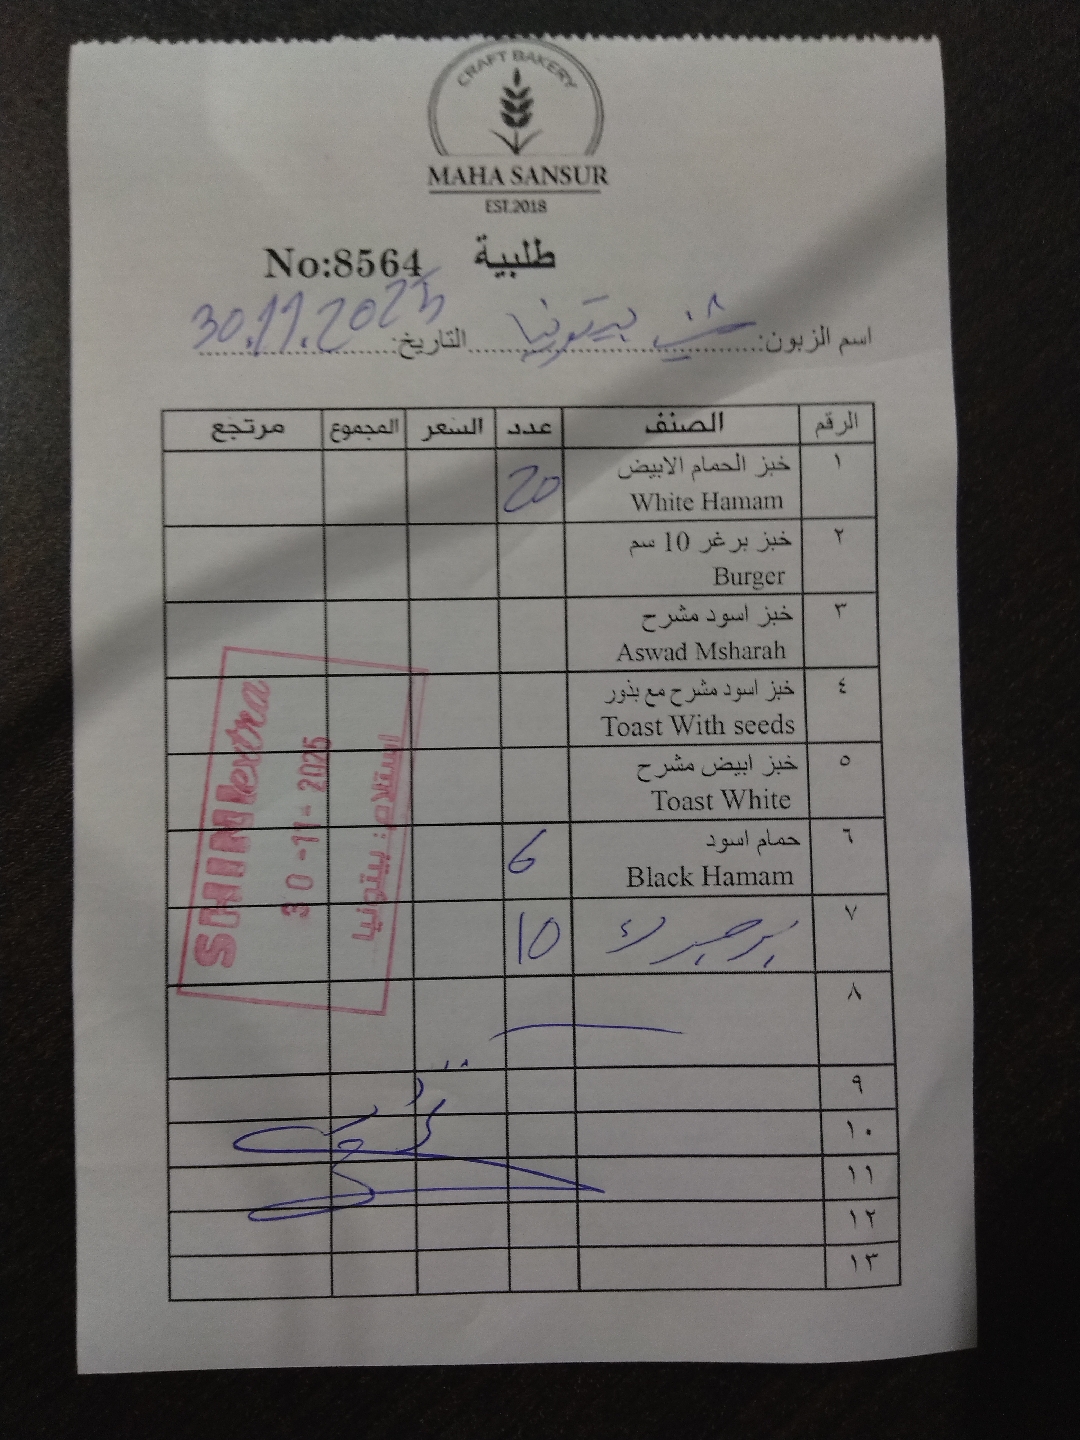 CRAFT BAKERY
MAHA SANSUR
EST.2018
No:8564 طلبية
اسم الزبون: شني بيتونيا التاريخ: 30.11.2025
الرقم الصنف عدد السعر المجموع مرتجع
١ خبز الحمام الابيض 20
White Hamam
٢ خبز برغر 10 سم
Burger
٣ خبز اسود مشرح
Aswad Msharah
٤ خبز اسود مشرح مع بذور
Toast With seeds
٥ خبز ابيض مشرح
Toast White
٦ حمام اسود 6
Black Hamam
٧ 10
٨
٩
١٠
١١
١٢
١٣
SHINI extra
30-11-2025
استلام: بيتونيا